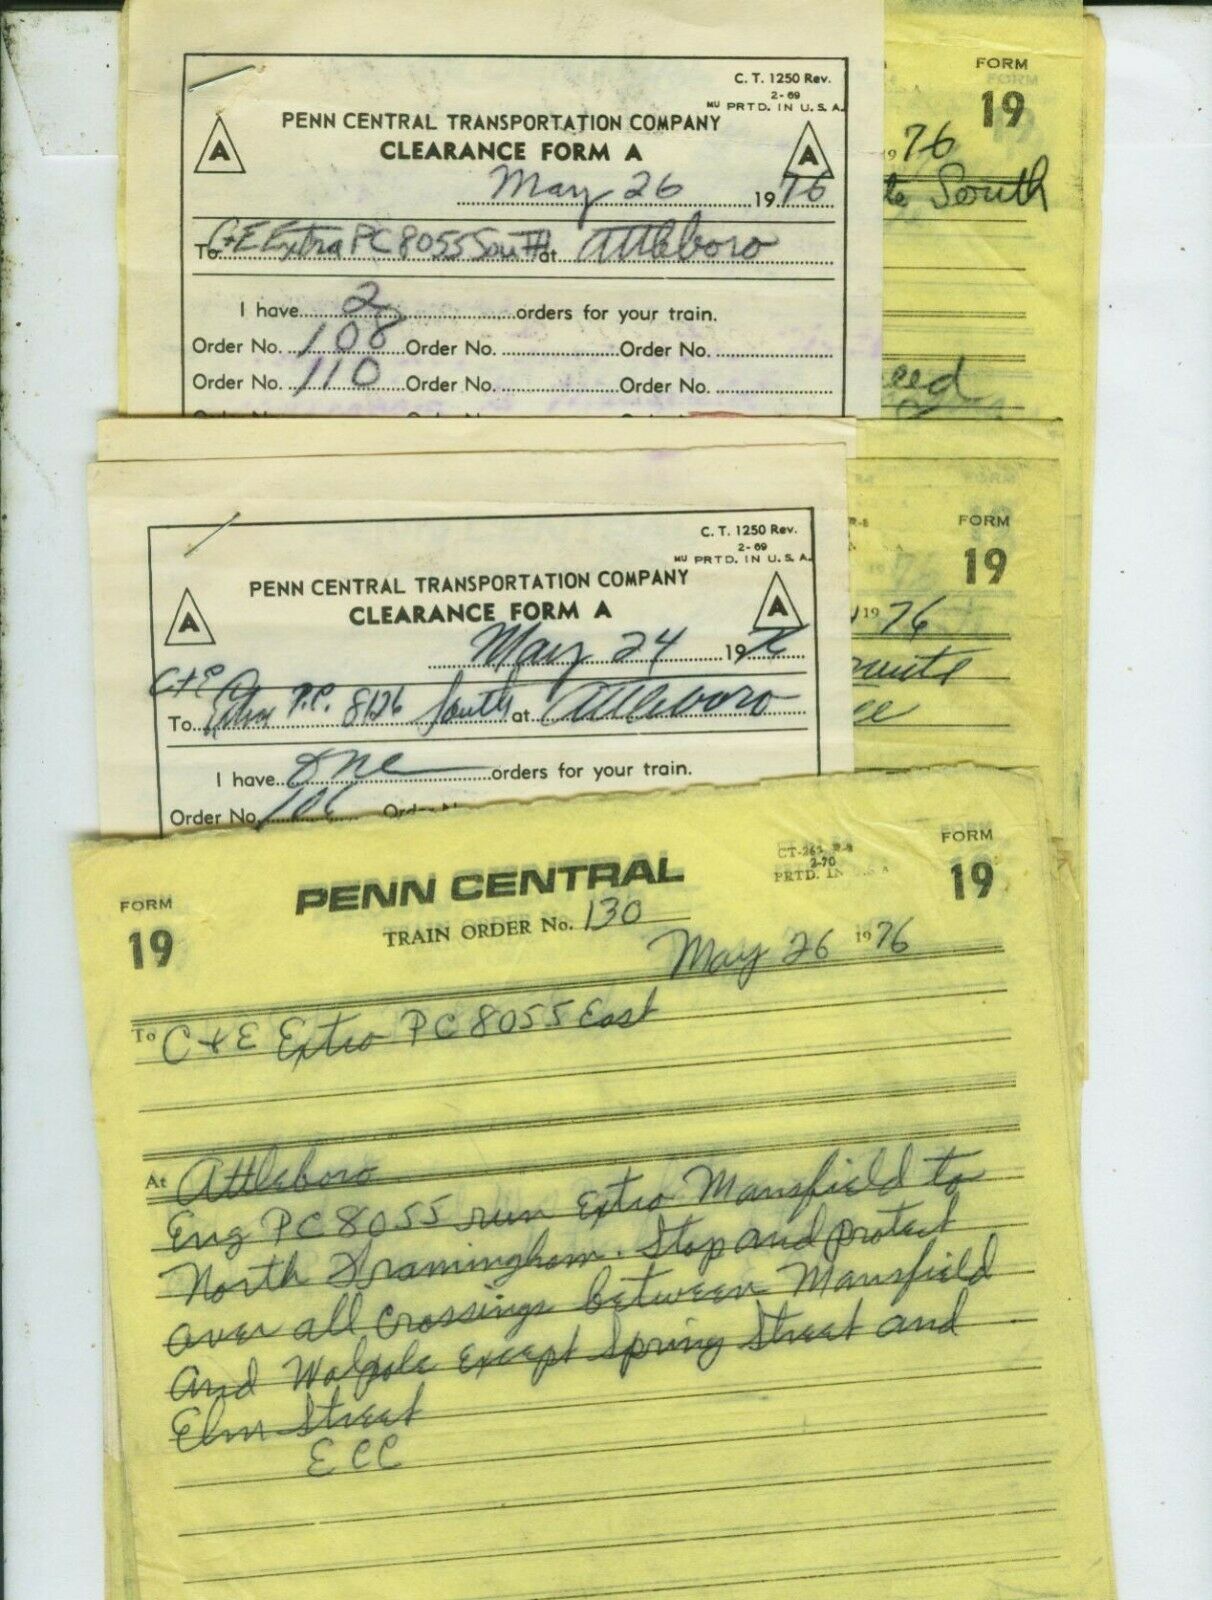 C. T. 1250 Rev.
2-69
MU PRTD. IN U. S. A.
PENN CENTRAL TRANSPORTATION COMPANY
A CLEARANCE FORM A A
May 26 1976
To C+E Extra PC 8055 South at Attleboro
I have 2 orders for your train.
Order No. 108 Order No. Order No.
Order No. 110 Order No. Order No.
FORM
19
1976
South
C. T. 1250 Rev.
2-69
MU PRTD. IN U. S. A.
PENN CENTRAL TRANSPORTATION COMPANY
A CLEARANCE FORM A A
May 24 197
C+E
To Extra P.C. 8126 South at Attleboro
I have one orders for your train.
Order No. 106
FORM
19
1976
FORM
19
PENN CENTRAL
TRAIN ORDER No. 130
2-70
PRTD. IN U.S.A
FORM
19
May 26 1976
To C+E Extra PC 8055 East
At Attleboro
Eng PC 8055 run Extra Mansfield to
North Framingham. Stop and protect
over all crossings between Mansfield
and Walpole except Spring Street and
Elm Street
ECC